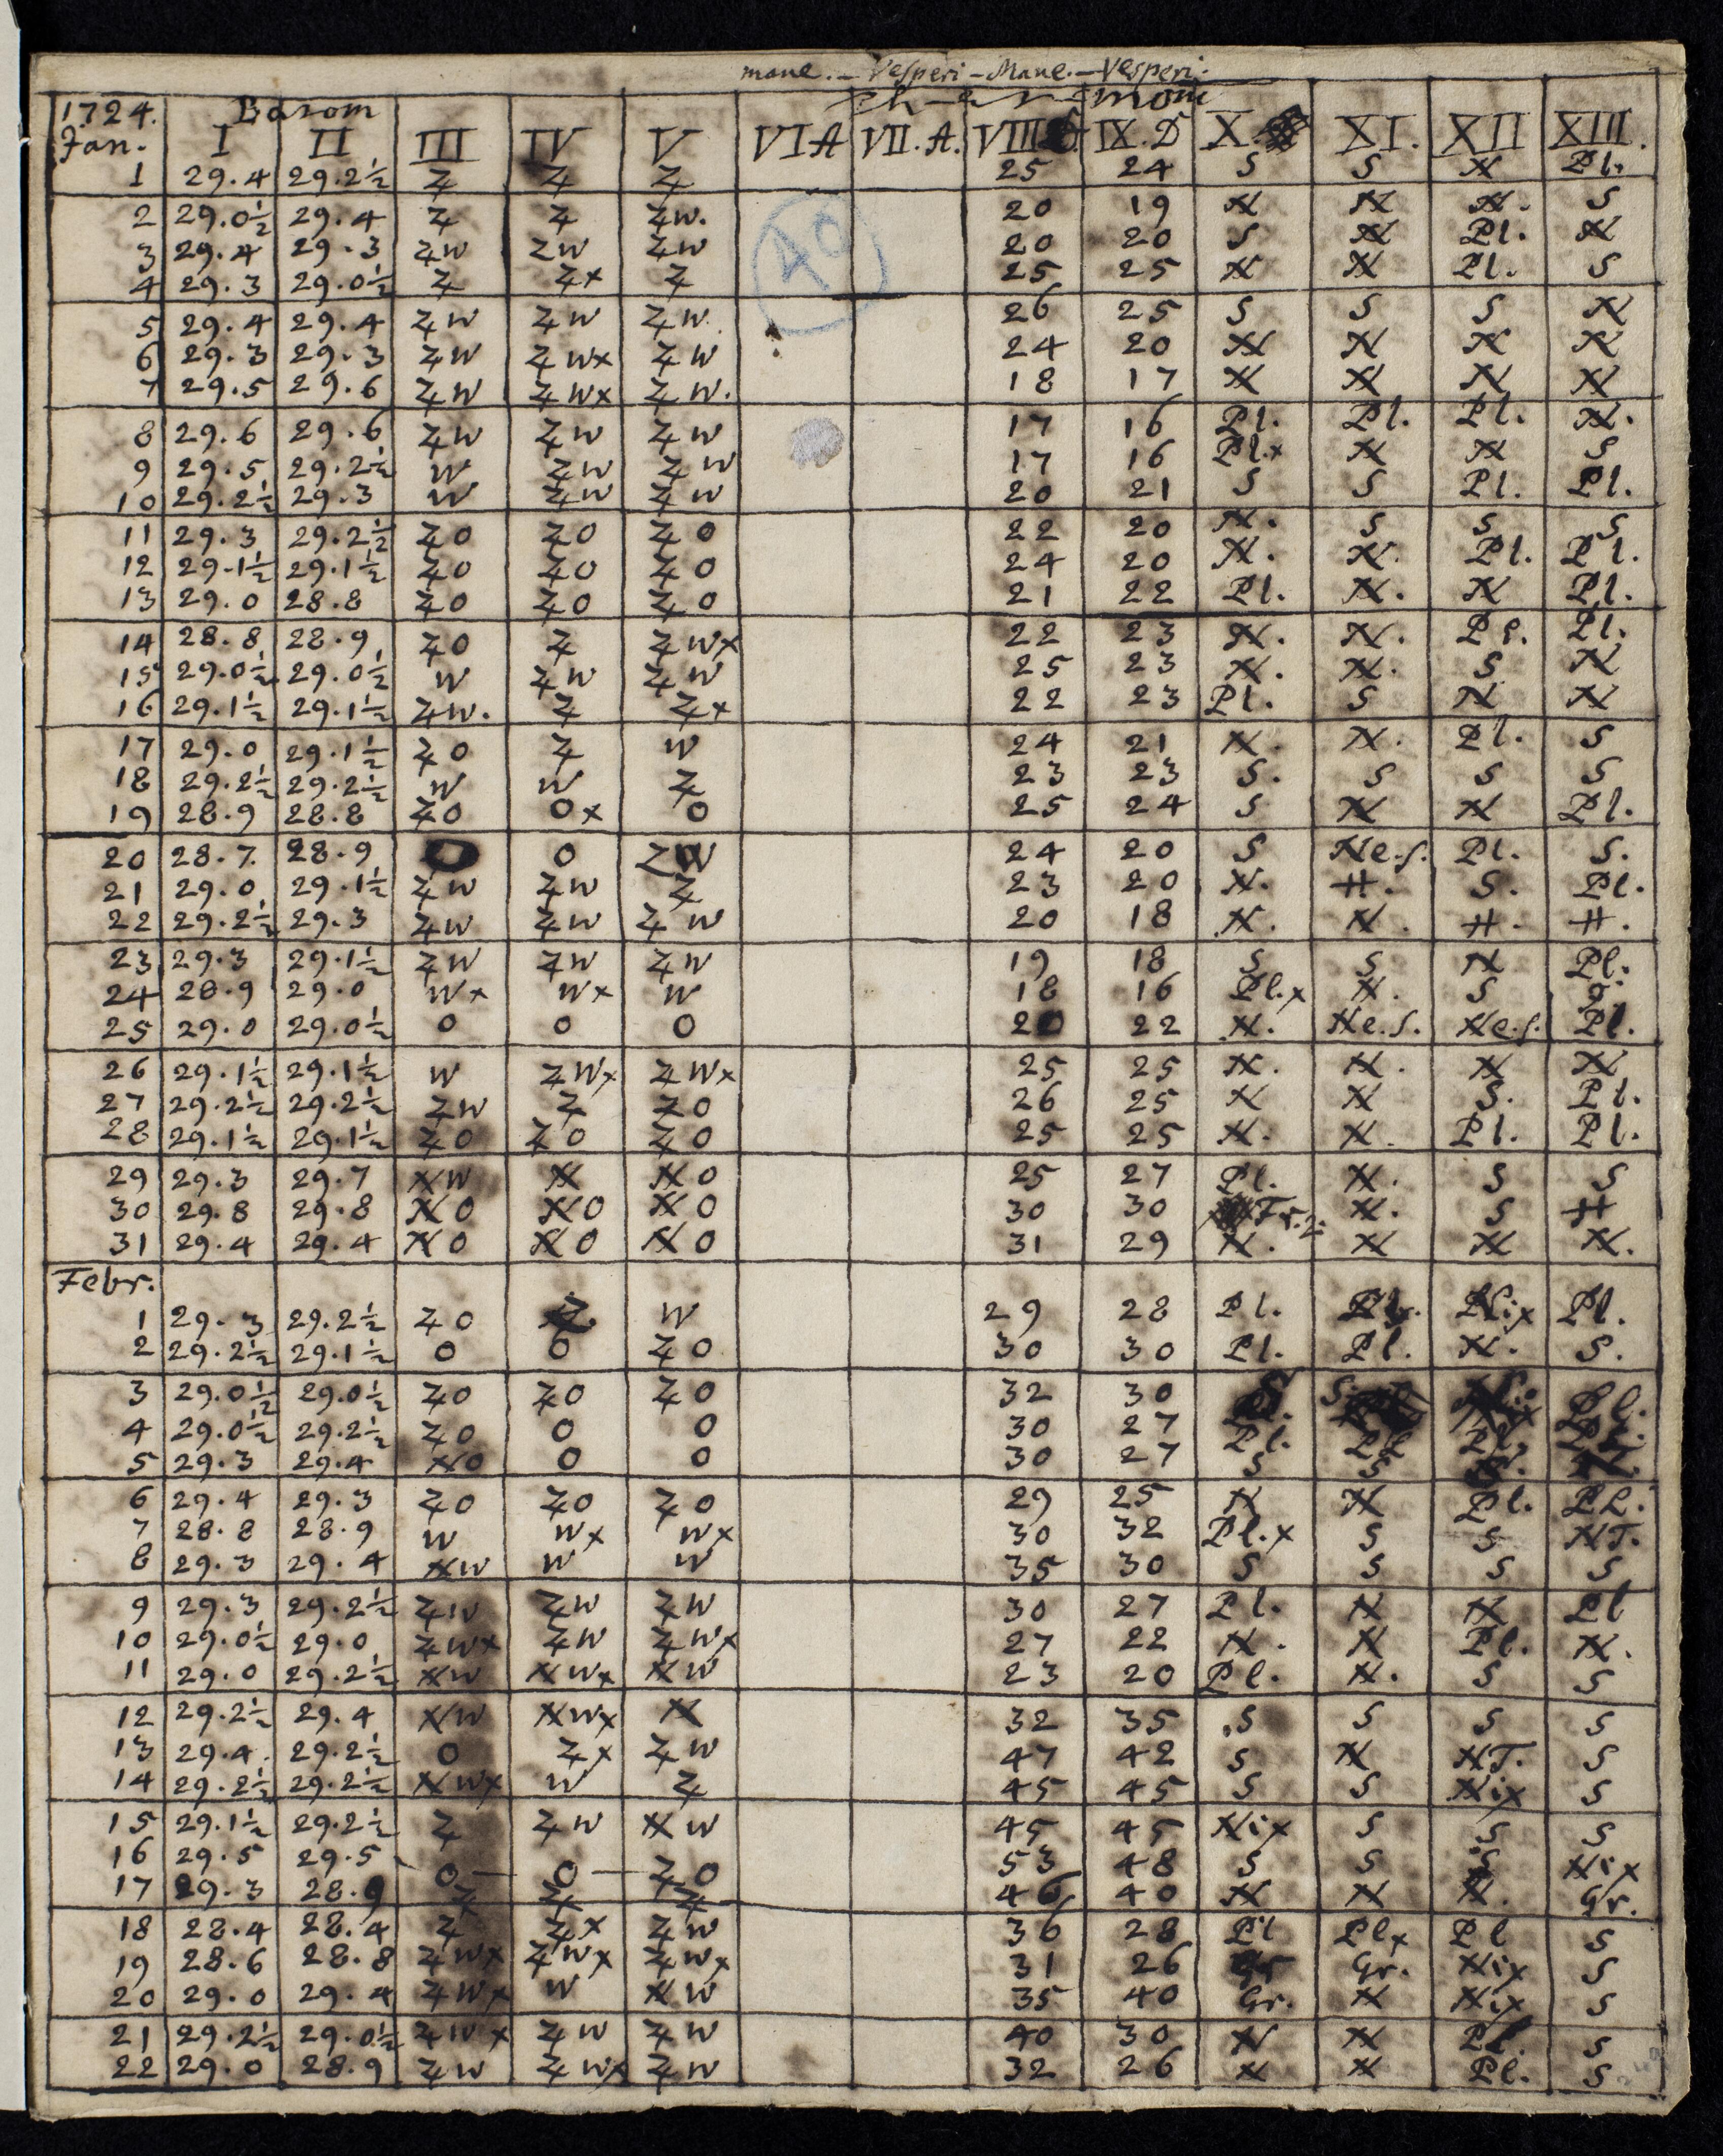 mane. – Vesperi – Mane. – Vesperi.
1724. Barom Thermom
Jan. I II III IV V VI A VII. A. VIII IX. D X. XI. XII XIII.
1 29.4 29.2½ Z Z Z 25 24 S S N Pl.
2 29.0½ 29.4 Z Z ZW. 20 19 N N N. S
3 29.4 29.3 ZW ZW ZW 20 20 S N Pl. N
4 29.3 29.0½ Z Z× Z 25 25 N N Pl. S
5 29.4 29.4 ZW ZW ZW. 26 25 S S S N
6 29.3 29.3 ZW ZW× ZW 24 20 N N N N
7 29.5 29.6 ZW ZW× ZW. 18 17 N N N N
8 29.6 29.6 ZW ZW ZW 17 16 Pl. Pl. Pl. N.
9 29.5 29.2½ W ZW ZW 17 16 Pl.× N N S
10 29.2½ 29.3 W ZW ZW 20 21 S S Pl. Pl.
11 29.3 29.2½ ZO ZO ZO 22 20 N. S S S
12 29.1½ 29.1½ ZO ZO ZO 24 20 N. N. Pl. Pl.
13 29.0 28.8 ZO ZO ZO 21 22 Pl. N. N Pl.
14 28.8 28.9 ZO Z ZW× 22 23 N. N. Pl. Pl.
15 29.0½ 29.0½ W ZW ZW 25 23 N. N. S N
16 29.1½ 29.1½ ZW. Z Z× 22 23 Pl. S N N
17 29.0 29.1½ ZO Z W 24 21 N. N. Pl. S
18 29.2½ 29.2½ W W Z 23 23 S. S S S
19 28.9 28.8 ZO O× O 25 24 S N N Pl.
20 28.7. 28.9 O O ZW 24 20 S Ne.s. Pl. S.
21 29.0 29.1½ ZW ZW Z 23 20 N. H. S. Pl.
22 29.2½ 29.3 ZW ZW ZW 20 18 N. N. H. H.
23 29.3 29.1½ ZW ZW ZW 19 18 S S N Pl.
24 28.9 29.0 W× W× W 18 16 Pl.× N. S S.
25 29.0 29.0½ O O O 20 22 N. Ne.s. Ne.s. Pl.
26 29.1½ 29.1½ W ZW× ZW× 25 25 N. N. N N
27 29.2½ 29.2½ ZW Z ZO 26 25 N N S. Pl.
28 29.1½ 29.1½ ZO ZO ZO 25 25 N. N. Pl. Pl.
29 29.3 29.7 NW N NO 25 27 Pl. N. S S
30 29.8 29.8 NO NO NO 30 30 N. S H
31 29.4 29.4 NO NO NO 31 29 N. N N N.
Febr.
1 29.3 29.2½ ZO Z W 29 28 Pl. Nix Pl.
2 29.2½ 29.1½ O O ZO 30 30 Pl. Pl. N. S.
3 29.0½ 29.0½ ZO ZO ZO 32 30 Pl.
4 29.0½ 29.2½ ZO O O 30 27 Pl. Pl Pl.
5 29.3 29.4 NO O O 30 27 S S
6 29.4 29.3 ZO ZO ZO 29 25 N N Pl. Pl.
7 28.8 28.9 W W× W× 30 32 Pl.× S S NT.
8 29.3 29.4 NW W W 35 30 S S S S
9 29.3 29.2½ ZW ZW ZW 30 27 Pl. N N Pl
10 29.0½ 29.0 ZW× ZW ZW× 27 22 N. N Pl. N.
11 29.0 29.2½ NW NW× NW 23 20 Pl. N. S S
12 29.2½ 29.4 NW NW× N 32 35 S S S S
13 29.4. 29.2½ O Z× ZW 47 42 S N NT. S
14 29.2½ 29.2½ NW× W Z 45 45 S S Nix S
15 29.1½ 29.2½ Z ZW NW 45 45 Nix S S S
16 29.5 29.5 O – O – ZO 53 48 S S S Nix
17 29.3 28.9 Z Z Z 46 40 N N N. Gr.
18 28.4 28.4 Z Z× ZW 36 28 Pl Pl× Pl S
19 28.6 28.8 ZW× ZW× ZW× 31 26 Gr Gr. Nix S
20 29.0 29.4 ZW× W NW 35 40 Gr. N Nix S
21 29.2½ 29.0½ ZW× ZW ZW 40 30 N N Pl. S
22 29.0 28.9 ZW ZW× ZW 32 26 N N Pl. S
40